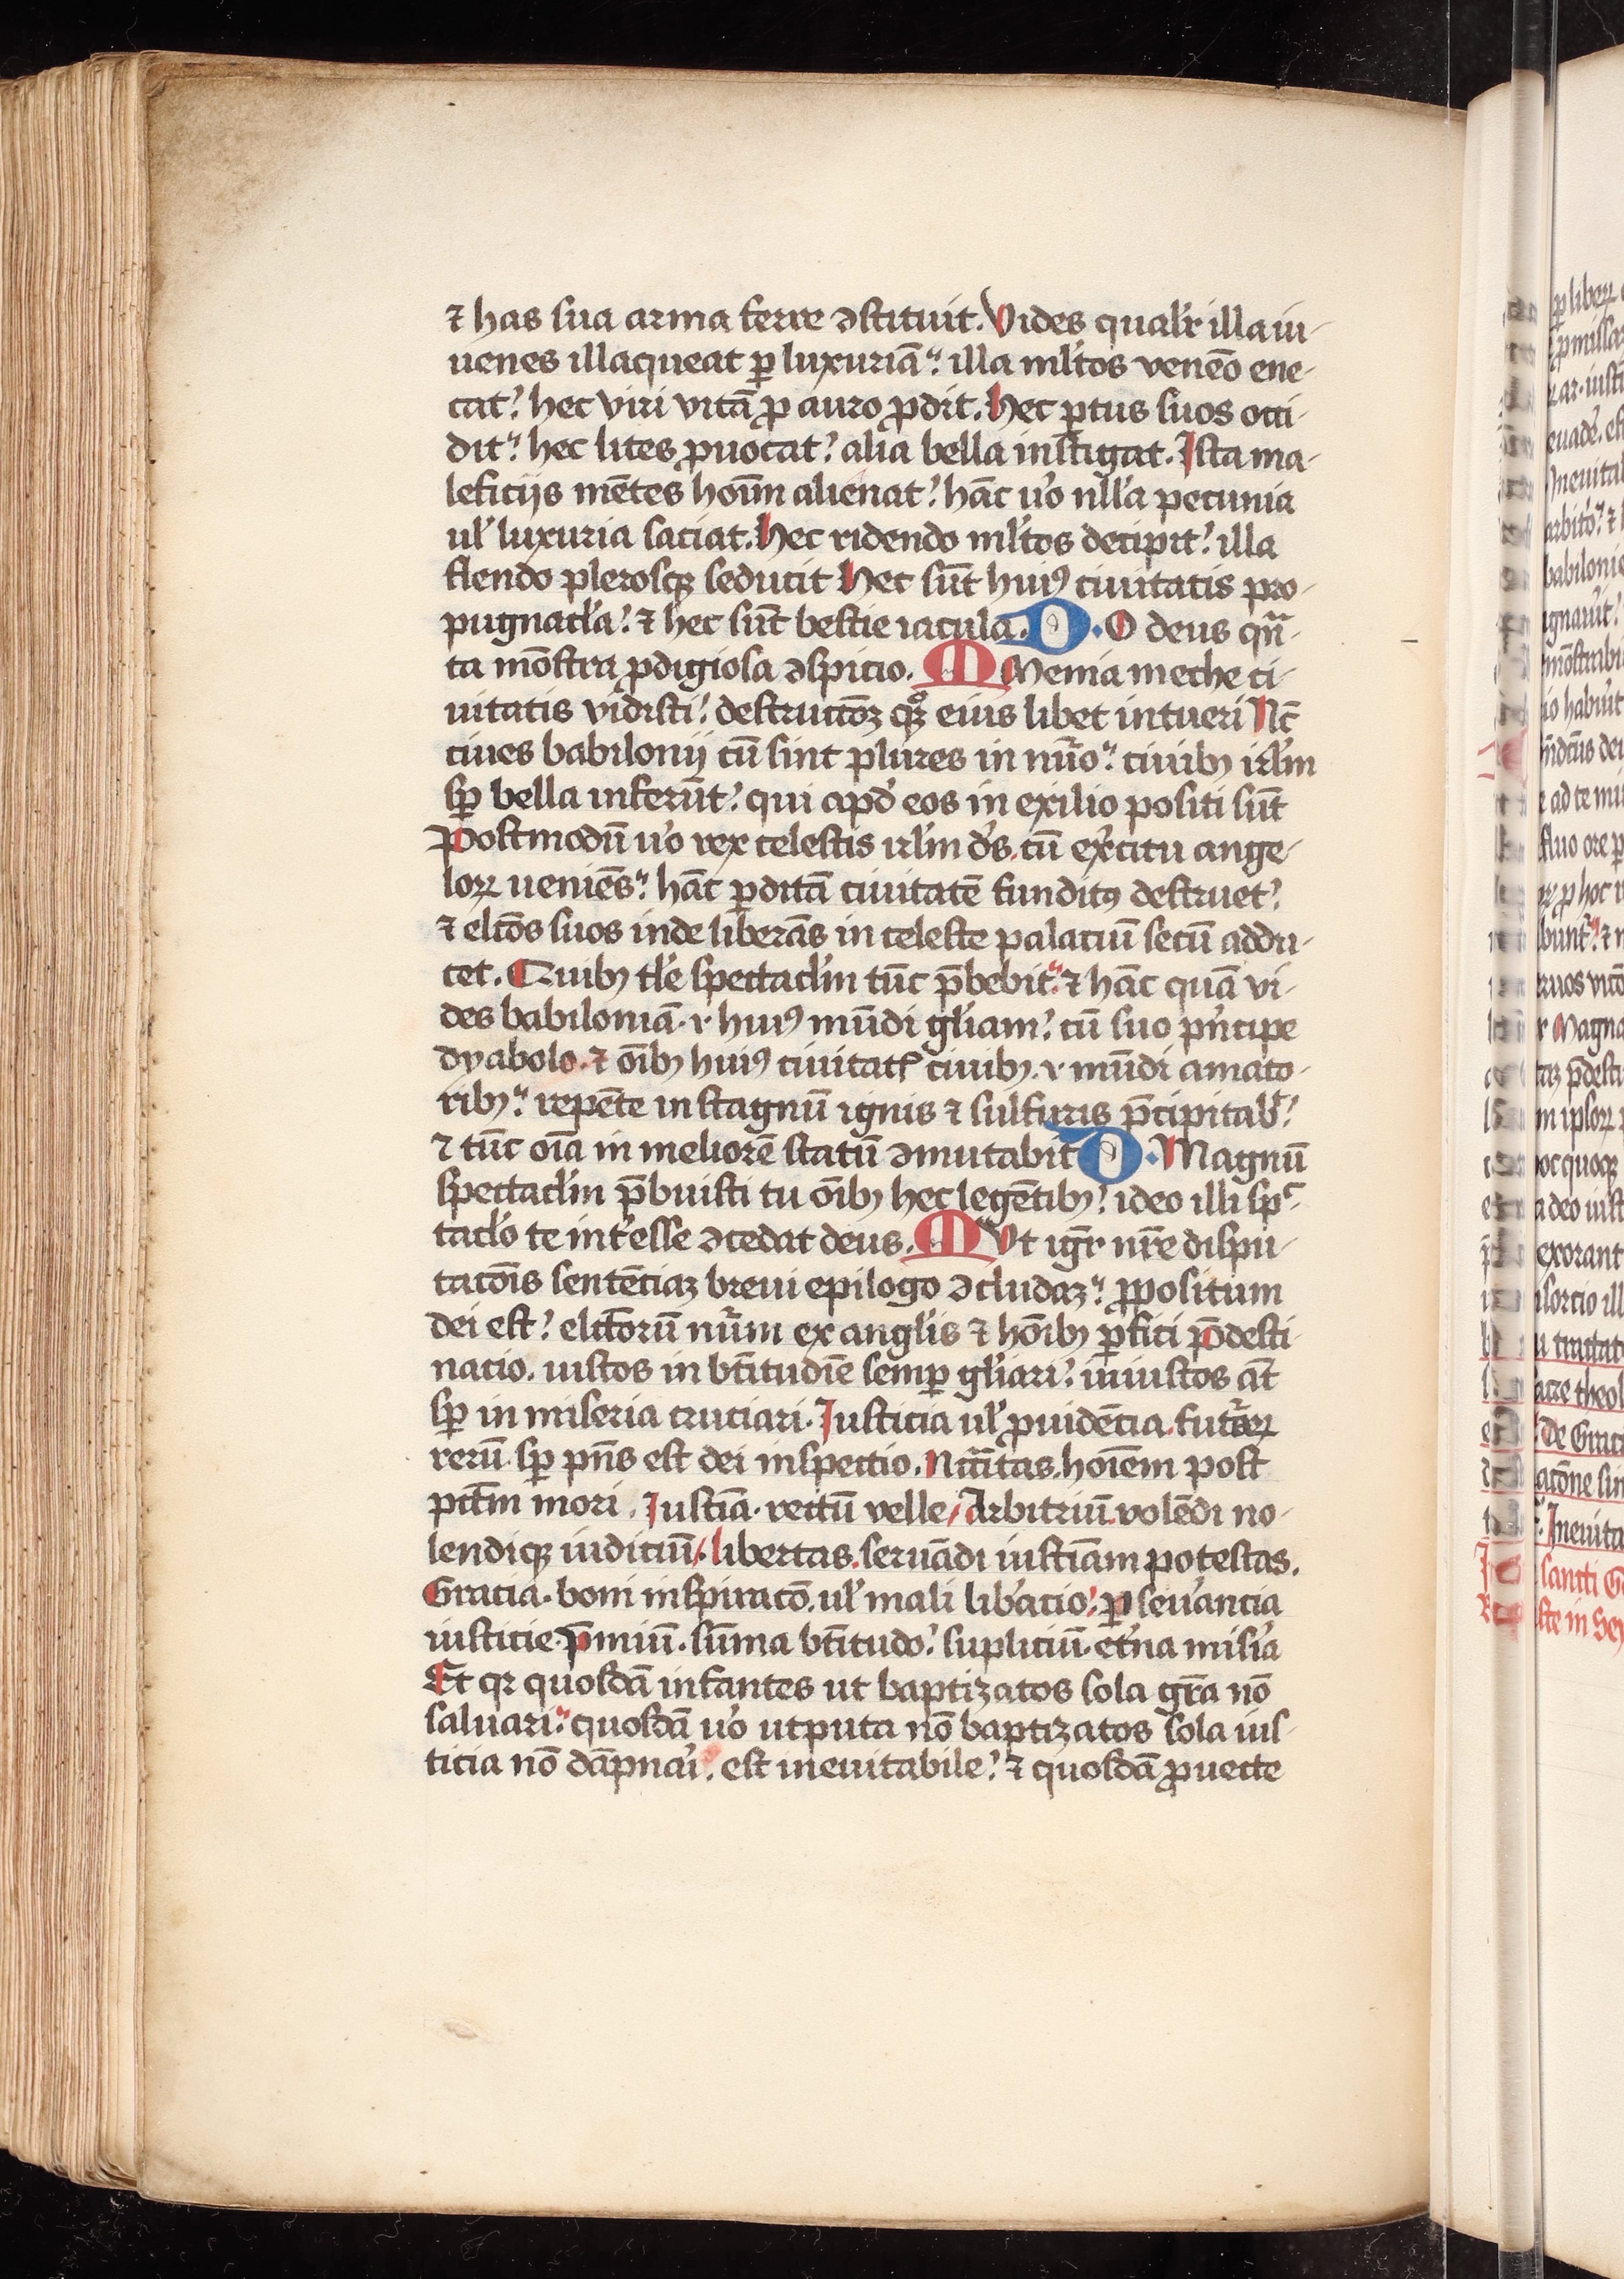 ⁊ has sua arma ferre ↄstituit. Vides qualr̕ illa iu-
uenes illaqueat ꝑ luxuriā: illa ml̕tos venēo ene-
cat? hec viri vitā ꝓ auro ꝓdit. Hec ꝑtus suos occi-
dit: hec lites ꝓuocat? alia bella instigat. Ista ma-
leficijs mētes hoīm alienat? hāc u̕o nll̕a pecunia
ul̕ luxuria saciat. Hec ridendo ml̕tos decipit? illa
flendo plerosqꝫ seducit Hec sūt huiꝯ ciuitatis pro-
pugnacl̕a? ⁊ hec sūt bestie iacula. D. O deus qn̄-
ta mōstra ꝓdigiosa ↄspicio. M Menia meche ci-
uitatis vidisti? destructōꝫ qꝫ eius libet intueri Nc̄
ciues babilonij cū sint plures in nūo: ciuibꝫ irl̕m
sꝑ bella inferūt? qui apd̕ eos in exilio positi sūt
Postmodū u̕o rex celestis irl̕m dꝰs. cū ex̕citu ange-
loꝝ ueniēs: hāc ꝑditā ciuitatē funditꝯ destruet?
⁊ elc̄os suos inde liberās in celeste palaciū secū addu-
cet. Quibꝫ tl̕e spectacl̕m tūc p̄bebit: ⁊ hāc quā vi-
des babiloniā. i. huiꝯ mūdi gl̕iam? cū suo pn̕cipe
dyabolo. ⁊ oībꝫ huiꝯ ciuitatꝭ ciuibꝫ. i. mūdi amato-
ribꝫ: repēte in stagnū ignis ⁊ sulfuris p̄cipitab̕?
⁊ tūc oīa in meliorē statū ↄmutabit D. Magnū
spectacl̕m p̄buisti tu oībꝫ hec legētibꝫ? ideo illi spc̄-
tacl̕o te int̕esse ↄcedat deus. M Vt igr̄ nr̄e dispu-
tacōis sentēciaꝫ breui epilogo ↄcludaꝫ: ꝓpositum
dei est? elc̄torū nūm ex angl̕is ⁊ hōibꝫ ꝑfici p̄desti-
nacio. iustos in bt̄itudīe semꝑ gl̕iari? iniustos āt
sꝑ in miseria cruciari. Iusticia ul̕ ꝓuidēcia. futuroꝝ
rerū. sꝑ pn̄s est dei inspectio. Nc̄citas. hoīem post
pctm̄ mori. Iusticīa. rectū velle/ Arbitriū. volēdi no-
lendiqꝫ iudiciū/. libertas. seruādi iusticīam potestas.
Gracia. boni inspiracō. ul̕ mali lib̕acio? ꝑseu̕ancia
iusticie. p̄miū. sūma bt̄itudo? supliciū. et̕na mis̕ia
Et qꝛ quosdā infantes ut baptizatos sola gr̄a nō
saluari: quosdā u̕o utputa nō baptizatos sola ius-
ticia nō dāpnar̕i. est ineuitabile? ⁊ quosdā ꝓuecte